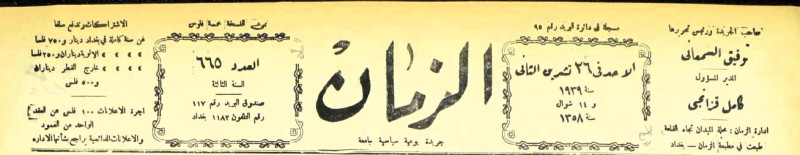 صاحب الجريدة ورئيس تحريرها
توفيق السمعاني
المدير المسؤول
كامل قزانجي
ادارة الزمان : محلة الميدان تجاه القلعة
طبعت في مطبعة الزمان — بغداد
مسجلة في دائرة البريد رقم ٩٥
الاحد في ٢٦ تشرين الثاني
سنة ١٩٣٩
و ١٤ شوال
سنة ١٣٥٨
الزمان
جريدة يومية سياسية جامعة
ثمن النسخة خمسة فلوس
العدد ٦٦٥
السنة الثالثة
صندوق البريد رقم ١١٧
رقم التلفون ١١٨٧ بغداد
الاشتراكات وتدفع سلفا
عن سنة كاملة في بغداد دينار و ٧٥٠ فلسا
» » » الالوية ديناران و ٢٥٠ فلسا
» » » خارج القطر ديناران
و ٥٠٠ فلس
اجرة الاعلانات ١٠٠ فلس عن العقد
الواحد من العمود
والاعلانات الدائمية راجع بشأنها الادارة